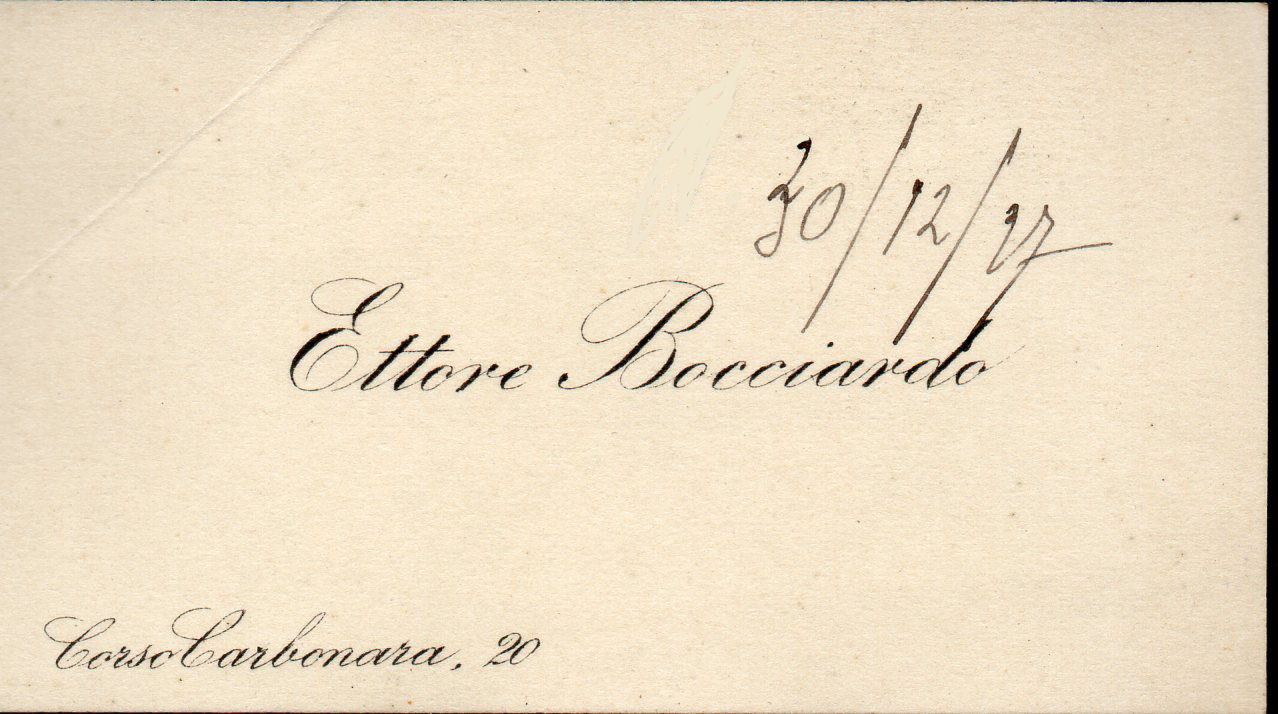 30/12/37
Ettore Bocciardo
Corso Carbonara, 20